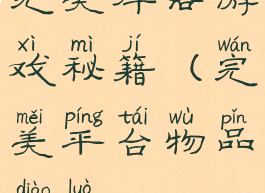 完美平台游
xì mì jí wán
戏秘籍(完
měi píng tái wù pǐn
美平台物品
diào luò